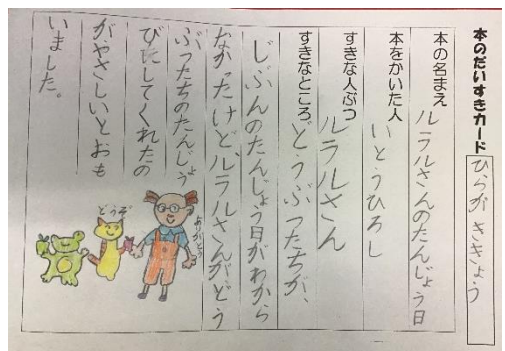 本のだいすきカード
ひらが ききょう
本の名まえ ルラルさんのたんじょう日
本をかいた人 いとうひろし
すきな人ぶつ ルラルさん
すきなところ どうぶつたちが、
じぶんのたんじょう日がわから
なかったけどルラルさんがどう
ぶつたちのたんじょう
びにしてくれたの
がやさしいとおも
いました。
どうぞ
ありがとう